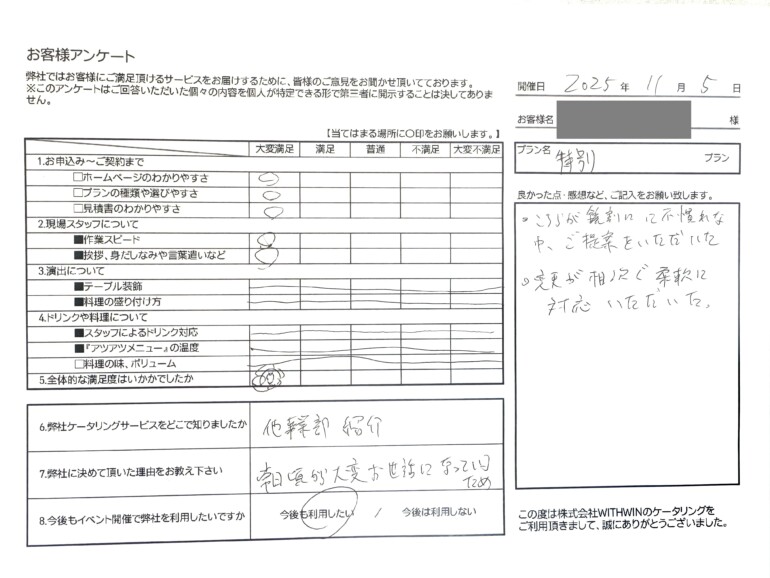 お客様アンケート
弊社ではお客様にご満足頂けるサービスをお届けするために、皆様のご意見をお聞かせ頂いております。
※このアンケートはご回答いただいた個々の内容を個人が特定できる形で第三者に開示することは決してありま
せん。
【当てはまる場所に〇印をお願いします。】
大変満足 満足 普通 不満足 大変不満足
1.お申込み～ご契約まで
□ホームページのわかりやすさ
□プランの種類や選びやすさ
□見積書のわかりやすさ
2.現場スタッフについて
■作業スピード
■挨拶、身だしなみや言葉遣いなど
3.演出について
■テーブル装飾
■料理の盛り付け方
4.ドリンクや料理について
■スタッフによるドリンク対応
■『アツアツメニュー』の温度
□料理の味、ボリューム
5.全体的な満足度はいかがでしたか
6.弊社ケータリングサービスをどこで知りましたか 他事業部 紹介
7.弊社に決めて頂いた理由をお教え下さい 常日頃から大変お世話になっている
ため
8.今後もイベント開催で弊社を利用したいですか 今後も利用したい / 今後は利用しない
開催日 2025 年 11 月 5 日
お客様名 様
プラン名 特別 プラン
良かった点・感想など、ご記入をお願い致します。
。こちらが鏡割りに不慣れな
中、ご提案をいただいた
。変更が相次ぐ柔軟に
対応いただいた。
この度は株式会社WITHWINのケータリングを
ご利用頂きまして、誠にありがとうございました。